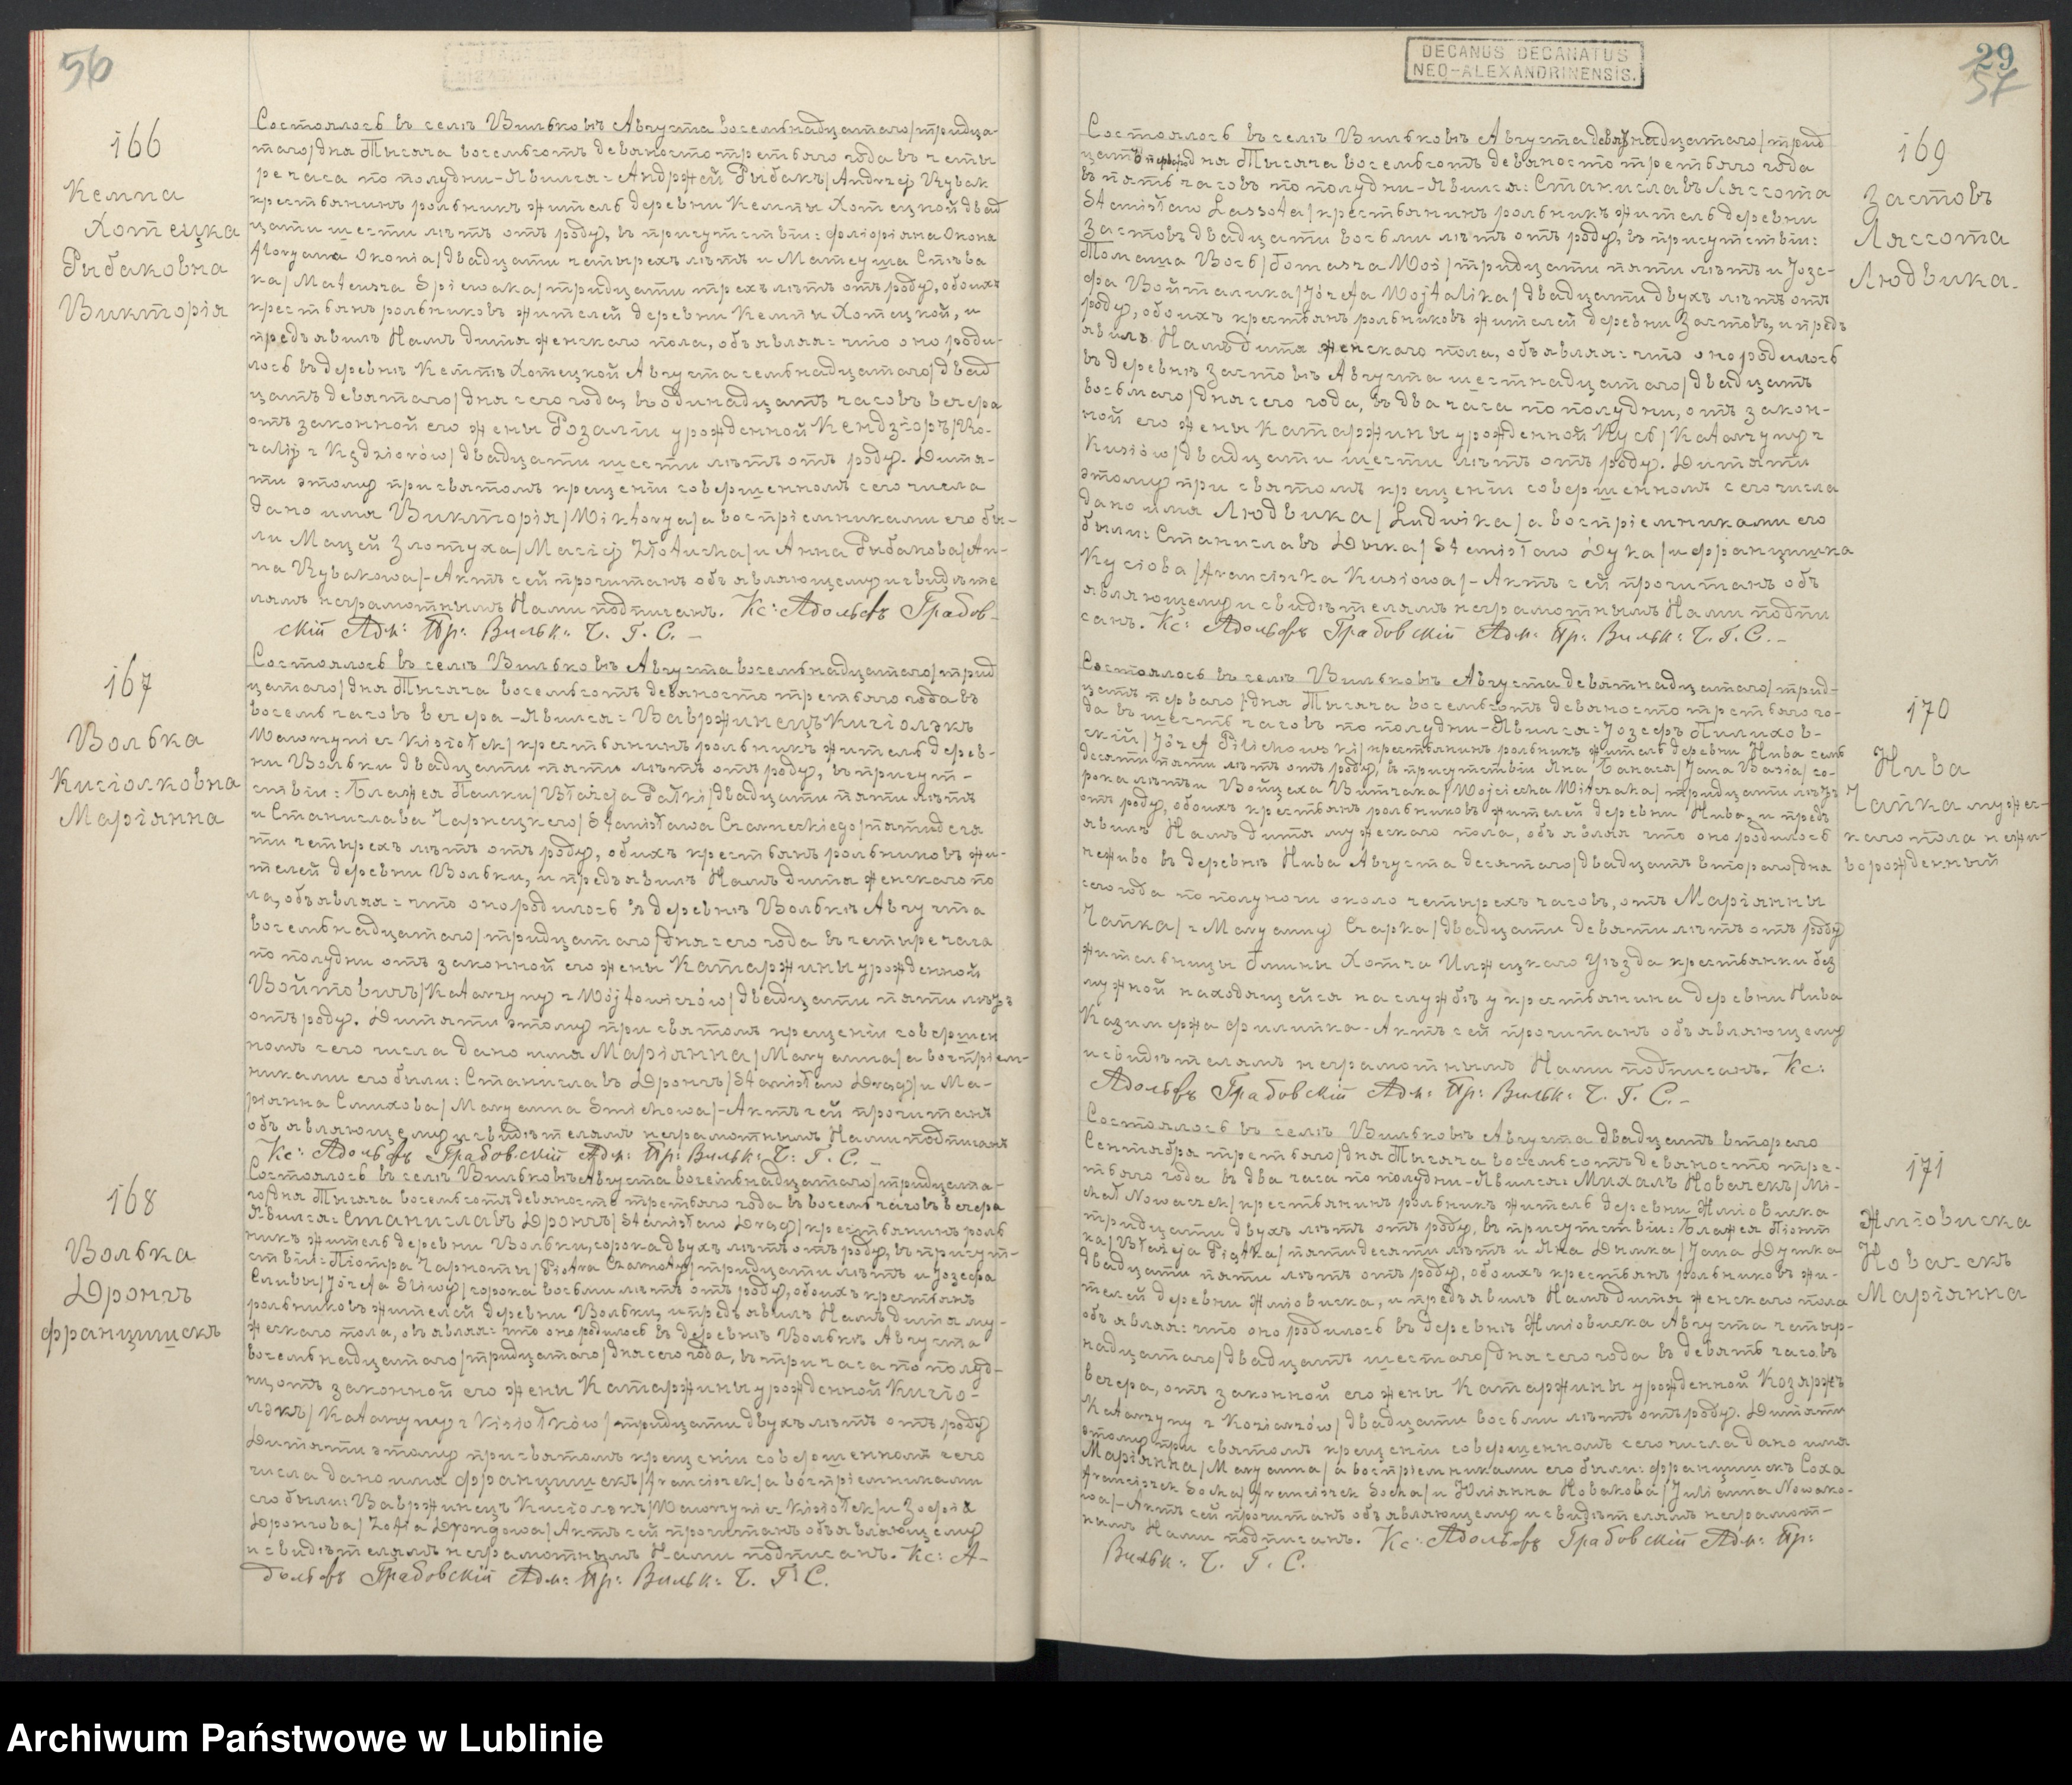 56
166
Кемпа
Хотецка
Рыбаковна
Викторія
Состоялось въ селѣ Вильковѣ Августа восемьнадцатаго/тридца-
таго/дня Тысяча восемьсотъ девяносто третьяго года въ четы
ре часа по полудни-Явился: Андржей Рыбакъ/Andrzej Rybak
крестьянинъ рольникъ житель деревни Кемпы Хотецкой двад
цати шести лѣтъ отъ роду, въ присутствіи: Флоріяна Оконя
Floryana Okonia/двадцати четырехъ лѣтъ и Матеуша Спѣва
ка/Mateusza Śpiewaka/тридцати трехъ лѣтъ отъ роду, обоихъ
крестьянъ рольниковъ жителей деревни Кемпы Хотецкой, и
предъявилъ Намъ дитя женскаго пола, объявляя: что оно роди-
лось въ деревнѣ Кемпѣ Хотецкой Августа семьнадцатаго/двад
цать девятаго/дня сего года, въ одинадцать часовъ вечера
отъ законной его жены Розаліи урожденной Кендзіоръ/Ro-
zalij z Kędziorów/двадцати шести лѣтъ отъ роду. Дитя-
ти этому при святомъ крещеніи совершенномъ сего числа
дано имя Викторія/Wiktorya/а воспріемниками его бы-
ли Мацей Злотуха/Maciej Złotucha/и Анна Рыбакова/An-
na Rybakowa/-Актъ сей прочитанъ объявляющему и свидѣте
лямъ неграмотнымъ Нами подписанъ. Кс: Адольфъ Грабов-
скій Адм: Пр: Вильк: Ч. Г. С. -
167
Волька
Кисіолковна
Маріянна
Состоялось въ селѣ Вильковѣ Августа восемьнадцатаго/трид
цатаго/дня Тысяча восемьсотъ девяносто третьяго года въ
восемь часовъ вечера-Явился: Вавржинецъ Кисіолэкъ
Wawrzyniec Kisiołek/крестьянинъ рольникъ житель дерев-
ни Вольки двадцати пяти лѣтъ отъ роду, въ присут-
ствіи: Блажея Палки/Błażeja Pałki/двадцати пяти лѣтъ
и Станислава Чарнецкего/Stanisława Czarneckiego/пятидеся
ти четырехъ лѣтъ отъ роду, обоихъ крестьянъ рольниковъ жи-
телей деревни Вольки, и предъявилъ Намъ дитя женскаго по
ла, объявляя: что оно родилось въ деревнѣВолькѣ Августа
восемьнадцатаго/тридцатаго/дня сего года въ четыре часа
по полудни отъ законной его жены Катаржины урожденной
Войтовичъ/Katarzyny z Wójtowiczów/двадцати пяти лѣтъ
отъ роду. Дитяти этому при святомъ крещеніи совершен
номъ сего числа дано имя Маріянна/Maryanna/а воспріем-
никами его были: Станиславъ Дронгъ/Stanisław Drąg/и Ма-
ріянна Смихова/Maryanna Smichowa/-Актъ сей прочитанъ
объявляющему и свидѣтелямъ неграмотнымъ Нами подписанъ
Кс: Адольфъ Грабовскій Адм: Пр: Вильк: Ч. Г. С. -
168
Волька
Дронгъ
Францишекъ
Состоялось въ селѣ Вильковѣ Августа восемьнадцатаго/тридцата-
го/дня Тысяча восемьсотъ девяносто третьяго года въ восемь часовъ вечера
Явился: Станиславъ Дронгъ/Stanisław Drąg/крестьянинъ роль
никъ житель деревни Вольки, сорока двухъ лѣтъ отъ роду, въ присут-
ствіи: Піотра Чарноты/Piotra Czarnoty/тридцати лѣтъ и Юзефа
Сливы/Józefa Śliwy/сорока восьми лѣтъ отъ роду, обоихъ крестьянъ
рольниковъ жителей деревни Вольки, и предъявилъ Намъ дитя му-
жескаго пола, объявляя: что оно родилось въ деревнѣ Волькѣ Августа
восемьнадцатаго/тридцатаго/дня сего года, въ три часа по полуд-
ни, отъ законной его жены Катаржины урожденной Кисіо-
лэкъ/Katarzyny z Kisiołków/тридцати двухъ лѣтъ отъ роду
Дитяти этому при святомъ крещеніи совершенномъ сего
числа дано имя Францишекъ/Franciszek/а воспріемниками
его были: Вавржинецъ Кисіолэкъ/Wawrzyniec Kisiołek/и Зофія
Дронгова/Zofia Drongowa/Актъ сей прочитанъ объявляющему
и свидѣтелямъ неграмотнымъ Нами подписанъ. Кс: А-
дольфъ Грабовскій Адм: Пр: Вильк: Ч. Г. С.
DECANUS DECANATUS
NEO-ALEXANDRINENSIS.
29
57
169
Застовъ
Ляссота
Людвика.
Состоялось въ селѣ Вильковѣ Августа девятнадцатаго/трид
цать перваго дня Тысяча восемьсотъ девяносто третьяго года
въ пять часовъ по полудни-Явился: Станиславъ Ляссота
Stanisław Lassota/крестьянинъ рольникъ житель деревни
Застовъ двадцати восьми лѣтъ отъ роду, въ присутствіи:
Томаша Вось/Tomasza Woś/тридцати пяти лѣтъ и Юзе-
фа Войталика/Józefa Wojtalika/двадцати двухъ лѣтъ отъ
роду, обоихъ крестьянъ рольниковъ жителей деревни Застовъ, и предъ
явилъ Намъ дитя женскаго пола, объявляя: что оно родилось
въ деревнѣ Застовѣ Августа шестнадцатаго/двадцать
восьмаго/дня сего года, въ два часа по полудни, отъ закон-
ной его жены Катаржины урожденной Кусь/Katarzyny z
Kusiów/двадцати шести лѣтъ отъ роду. Дитяти
этому при святомъ крещеніи совершенномъ сего числа
дано имя Людвика/Ludwika/а воспріемниками его
были: Станиславъ Дыка/Stanisław Dyka/и Францишка
Кусіова/Franciszka Kusiowa/-Актъ сей прочитанъ объ
являющему и свидѣтелямъ неграмотнымъ Нами подпи
санъ. Кс: Адольфъ Грабовскій Адм: Пр: Вильк: Ч. Г. С. -
170
Нива
Чапка мужес-
каго пола нежи-
ворожденный
Состоялось въ селѣ Вильковѣ Августа девятнадцатаго/трид-
цать перваго/дня Тысяча восемьсотъ девяносто третьяго го-
да въ шесть часовъ по полудни-Явился: Юзефъ Пилихов-
скій/Józef Pilichowski/крестьянинъ рольникъ житель деревни Нива семь
десяти пяти лѣтъ отъ роду, въ присутствіи Яна Банася/Jana Banasia/со-
рока лѣтъ и Войцеха Витчака/Wojciecha Witczaka/тридцати лѣтъ
отъ роду, обоихъ крестьянъ рольниковъ жителей деревни Нива, и предъ
явилъ Намъ дитя мужескаго пола, объявляя что оно родилось
неживо въ деревнѣ Нива Августа десятаго/двадцать втораго/дня
сего года по полуночи около четырехъ часовъ, отъ Маріянны
Чапка/z Maryanny Czapka/двадцати девяти лѣтъ отъ роду
жительницы Гмины Хотча Илжецкаго Уѣзда крестьянки без
мужной находящейся на службѣ у крестьянина деревни Нива
Казимержа Филипка-Актъ сей прочитанъ объявляющему
и свидѣтелямъ неграмотнымъ Нами подписанъ. Кс:
Адольфъ Грабовскій Адм: Пр: Вильк: Ч. Г. С. -
171
Жміовиска
Новачекъ
Маріянна
Состоялось въ селѣ Вильковѣ Августа двадцать втораго
Сентября третьяго/дня Тысяча восемьсотъ девяносто тре-
тьяго года въ два часа по полудни-Явился: Михалъ Новачекъ/Mi-
chał Nowaczek/крестьянинъ рольникъ житель деревни Жміовиска
тридцати двухъ лѣтъ отъ роду, въ присутствіи: Блажея Піонт
ка/Błażeja Piątka/пятидесяти лѣтъ и Яна
двадцати пяти лѣтъ отъ роду, обоихъ крестьянъ рольниковъ жи-
телей деревни Жміовиска, и предъявилъ Намъ дитя женскаго пола
объявляя: что оно родилось въ деревнѣ Жміовиска Августа четыр-
надцатаго/двадцать шестаго/дня сего года въ девять часовъ
вечера, отъ законной его жены Катаржины урожденной Козяржъ
Katarzyny z Koziarzów/двадцати восьми лѣтъ отъ роду. Дитяти
этому при святомъ крещеніи совершенномъ сего числа дано имя
Маріянна/Maryanna/а воспріемниками его были: Францишекъ Соха
Franciszek Socha/Franciszek Socha/и Юліянна Новакова/Julianna Nowako-
wa/-Актъ сей прочитанъ объявляющему и свидѣтелямъ неграмот-
нымъ Нами подписанъ. Кс: Адольфъ Грабовскій Адм: Пр:
Вильк: Ч. Г. С.
Archiwum Państwowe w Lublinie